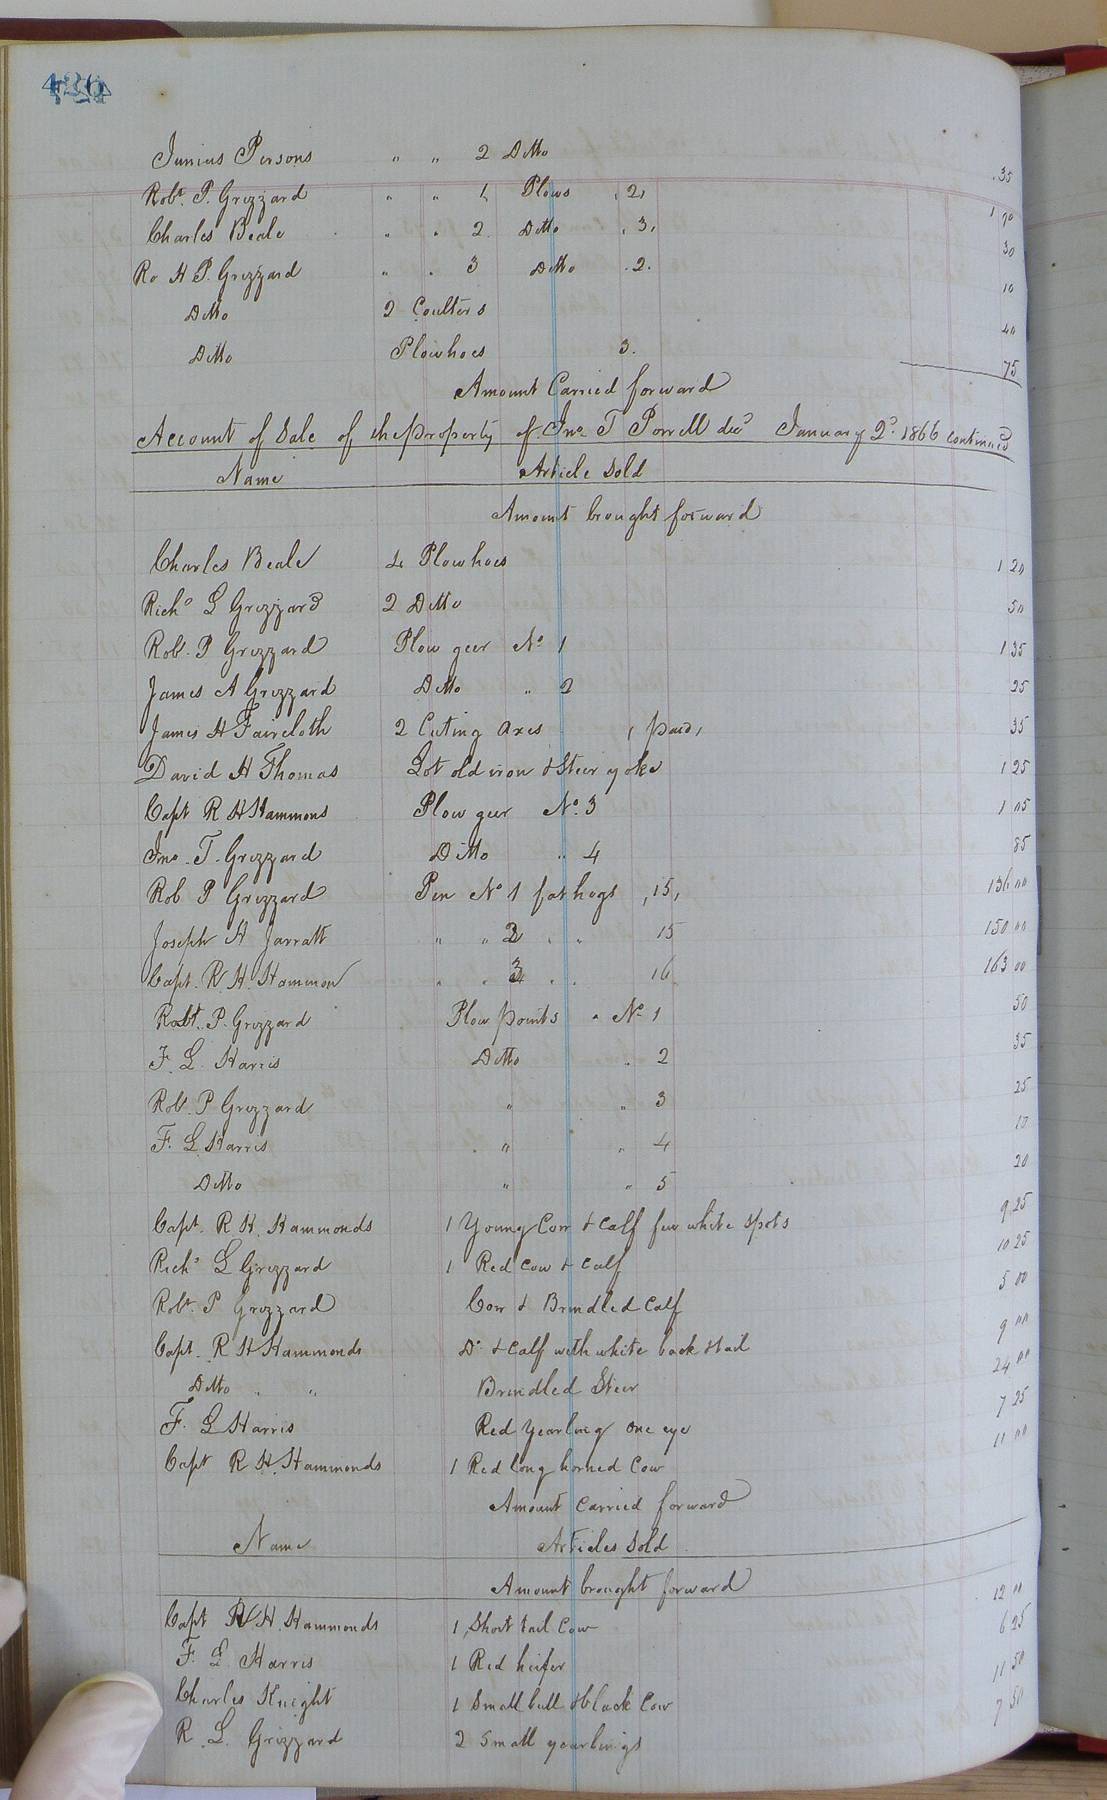 Junius Persons " " 2 Ditto 35
Robt. P. Grizzard " " 1, Plows ,2, 1 70
Charles Beale " " 2. Ditto ,3, 30
Ro H P. Grizzard " " 3 Ditto .2. 10
Ditto 2 Coulters 40
Ditto Plowhoes 3. 75
Amount Carried forward
Account of Sale of the Property of Jno T Porrell decd January 2d. 1866 continued
Name Article Sold
Amount brought forward
Charles Beale 4 Plowhoes 1 20
Richd L Grizzard 2 Ditto 50
Robt. P Grizzard Plow geer No 1 1 35
James A Grizzard Ditto " 2 25
James H Faircloth 2 Cuting axes , paid, 35
David H Thomas Lot old iron & Steer yoke 1 25
Capt R H Hammons Plow geer No. 3 1 05
Jno. T. Grizzard Ditto " 4 85
Rob P Grizzard Pen No 1 fat hogs ,15, 136 00
Joseph H Jarratt " " 2 " " 15 150 00
Capt. R. H. Hammon " " 3 " " 16 163 00
Robt. P. Grizzard Plow points " No 1 50
F. L. Harris Ditto " 2 35
Robt. P Grizzard " " 3 25
F. L Harris " " 4 10
Ditto " " 5 20
Capt. R H. Hammonds 1 Young Cow & Calf few white spots 9 25
Richd L Grizzard 1 Red Cow & Calf 10 25
Robt. P Grizzard Cow & Brindled Calf 5 00
Capt. R H Hammonds Do & Calf with white back & tail 9 00
Ditto " " Brindled Steer 24 00
F. L Harris Red Yearling One eye 7 25
Capt R H. Hammonds 1 Red long horned Cow 11 00
Amount Carried forward
Name Articles Sold
Amount brought forward
Capt R H. Hammonds 1 Short tail Cow 12 00
F. L. Harris 1 Red heifer 6 25
Charles Knight 1 Small bull & black Cow 11 50
R. L. Grizzard 2 Small yearlings 7 50